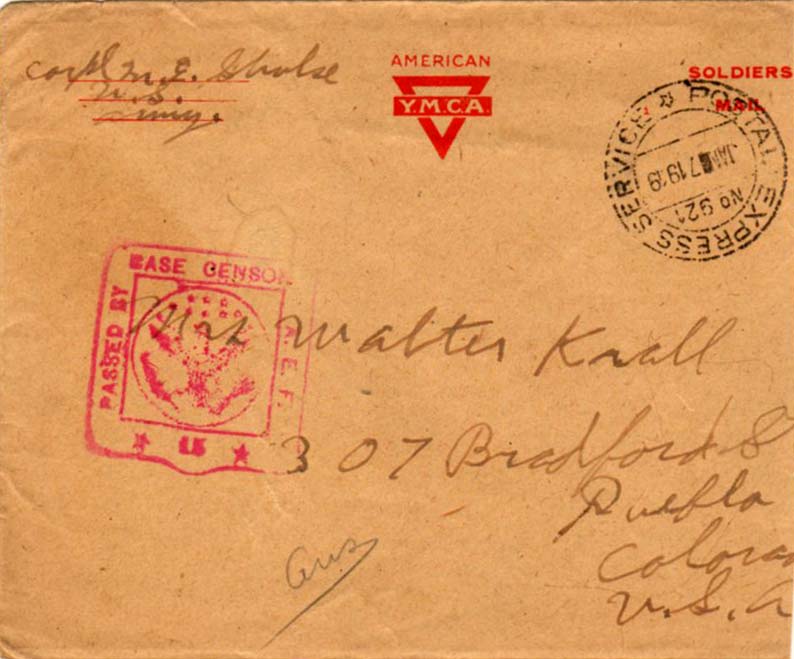 Corpl M. E. Sholse
U.S.
Army.
AMERICAN
Y.M.C.A.
SOLDIERS
MAIL
POSTAL EXPRESS SERVICE
JAN 7 1919
No 921
PASSED BY
BASE CENSOR
A.E.F.
15
Mrs Walter Krall
307 Bradford S
Pueblo
Colorad
U.S.A
Ans